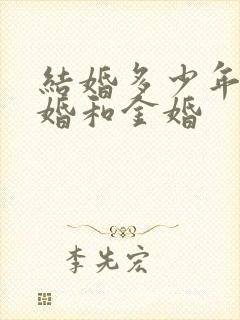 結婚多少年
婚和金婚
李先宏